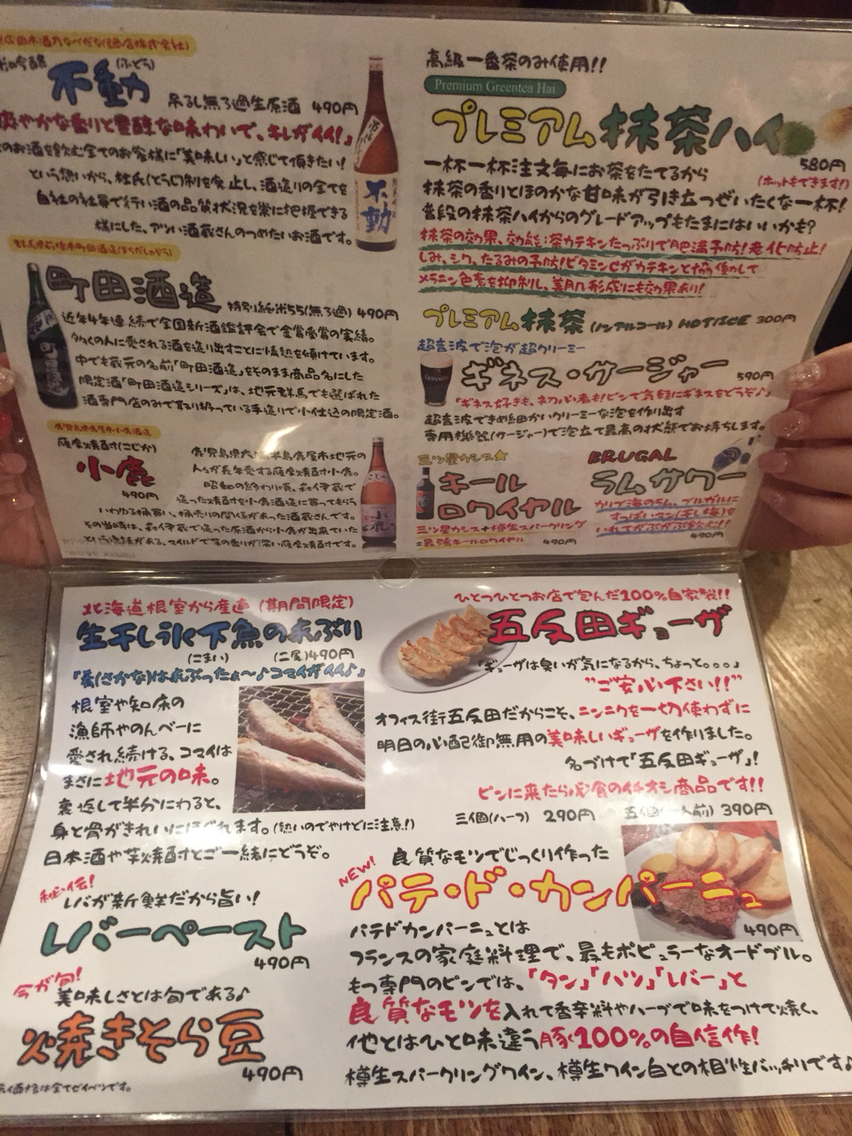 不動
(ふどう)
吊るし無ろ過生原酒 490円
爽やかな香りと豊醇な味わいで、キレがイイ!」
のお酒を飲む全てのお客様に「美味しい」と感じて頂きたい!
という想いから、杜氏(とうじ)制を廃止し、酒造りの全てを
自社の社員で行い酒の品質状況を常に把握できる
様にした、アツい酒蔵さんのつめたいお酒です。
町田酒造
特別純米55(無ろ過) 490円
近年4年連続で全国新酒鑑評会で金賞受賞の実績。
多くの人に愛される酒を造り出すことに情熱を傾けています。
中でも蔵元の名前「町田酒造」をそのまま商品名にした
限定酒「町田酒造シリーズ」は、地元群馬でも選ばれた
酒専門店のみで取り扱っている手造りで小仕込の限定酒。
薩摩焼酎(こじか)
小鹿
490円
鹿児島県大隅半島鹿屋市地元の
人々が長年愛する薩摩焼酎小鹿。
昭和の終わり頃、森伊蔵で
造った焼酎を小鹿酒造に買ってもらう
いわゆる桶買い、桶売りの関係があった酒蔵さんです。
その当時は、森伊蔵で造った原酒から小鹿が出来ていた
という逸話がある。マイルドで芋の香りが深い薩摩焼酎です。
高級一番茶のみ使用!!
Premium Greentea Hai
プレミアム抹茶ハイ
580円
(ホットもできます!)
一杯一杯注文毎にお茶をたてるから
抹茶の香りとほのかな甘味が引き立つぜいたくな一杯!
普段の抹茶ハイからのグレードアップもたまにはいいかも?
抹茶の効果、効能:茶カテキンたっぷりで肥満予防!老化防止!
しみ、シワ、たるみの予防!ビタミンCがカテキンと協働して
メラニン色素を抑制し、美肌形成にも効果あり!
プレミアム抹茶 (ノンアルコール) HOT/ICE 300円
超音波で泡が超クリーミー
ギネス・サージャー
590円
「ギネス好きも、ネクハ者もピンで気軽にギネスをどうぞ♪」
超音波できめ細かいクリーミーな泡を作り出す
専用機器(サージャー)で泡立て最高の状態でお持ちします。
三ツ星カシス★
キール
ロワイヤル
三ツ星カシス+樽生スパークリング
最強キールロワイヤル 490円
BRUGAL
ラムサワー
カリブ海のラム、ブルガルに
すっぱいウメ(干し梅)を
いれてがぶがぶ飲む!!
490円
北海道根室から産直(期間限定)
生干し氷下魚の炙ぶり
(こまい)
(二尾)490円
『肴(さかな)は炙ぶったぁ〜♪コマイがイイ♪』
根室や知床の
漁師やのんべーに
愛され続ける、コマイは
まさに地元の味。
裏返して半分にわると、
身と骨がきれいにほぐれます。(熱いのでやけどに注意!)
日本酒や芋焼酎とご一緒にどうぞ。
秘伝!
レバが新鮮だから旨い!
レバーペースト
490円
今が旬!
美味しさとは旬である♪
焼きそら豆
490円
価格は全てゼイベツです。
ひとつひとつお店で包んだ100%自家製!!
五反田ギョーザ
「ギョーザは臭いが気になるから、ちょっと。。。」
"ご安心下さい!!"
オフィス街五反田だからこそ、ニンニクを一切使わずに
明日の心配御無用の美味しいギョーザを作りました。
名づけて「五反田ギョーザ」!
ピンに来たら必食のイチオシ商品です!!
三個(ハーフ) 290円 五個(一人前) 390円
NEW!
良質なモツでじっくり作った
パテ・ド・カンパーニュ
490円
パテドカンパーニュとは
フランスの家庭料理で、最もポピュラーなオードブル。
もつ専門のピンでは、「タン」「ハツ」「レバー」と
良質なモツを入れて香辛料やハーブで味をつけて焼く、
他とはひと味違う豚100%の自信作!
樽生スパークリングワイン、樽生ワイン白との相性バッチリです♪